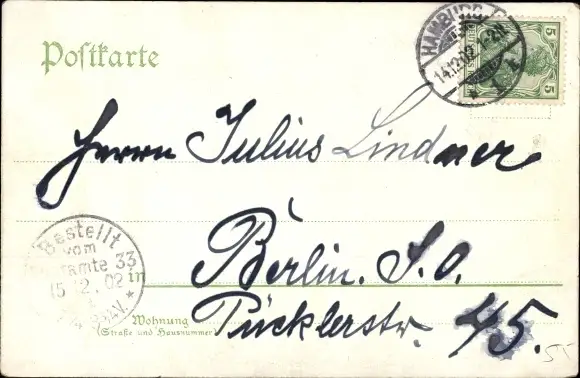 Postkarte
HAMBURG
14.12.02.1-2N.
* 1 k
5 5
Herrn Julius Lindner
Bestellt
vom
amte 33
15.12.02
in Berlin. S.O.
Wohnung
(Straße und Hausnummer)
Pücklerstr. 45.
55